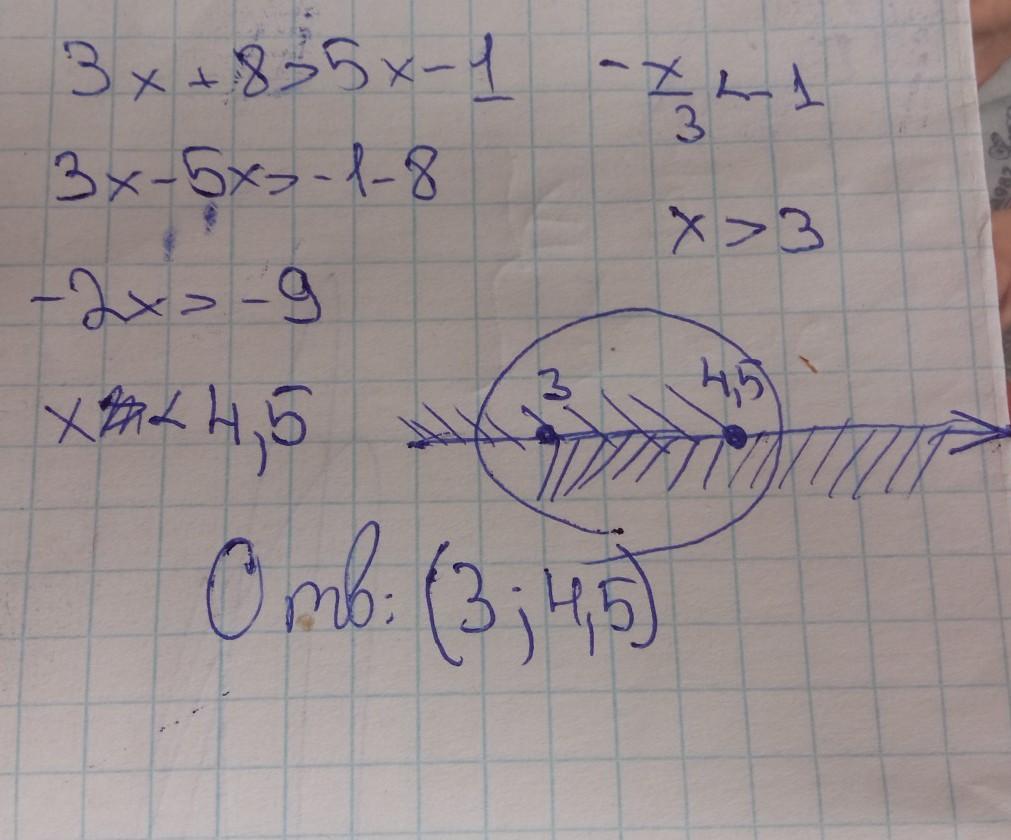 3x + 8 > 5x - 1
3x - 5x > -1 - 8
-2x > -9
x < 4,5
-x/3 < 1
x > 3
3 4,5
Отв: (3; 4,5)